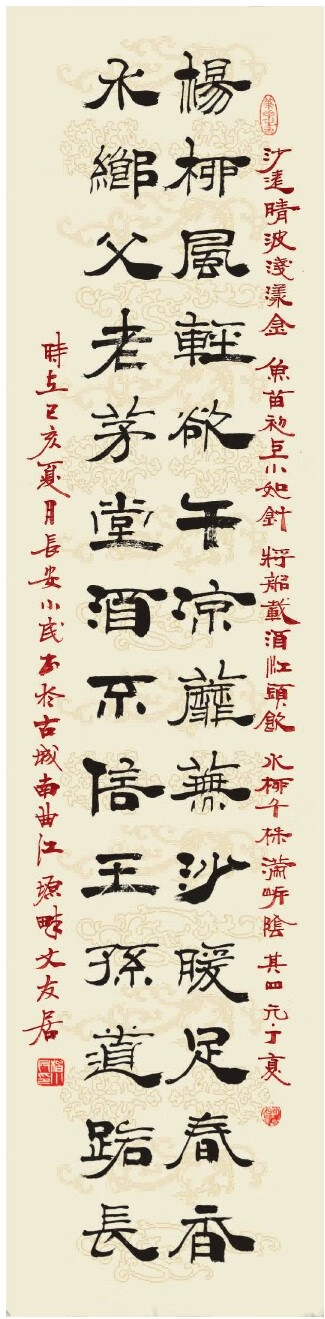 沙遠晴波淺漾金 魚苗初上小如針 將船載酒江頭飲 水柳千株滿岍陰 其四 元·丁复
楊柳風輕欲午涼蘼蕪沙暖足春香
水鄉父老茅堂酒不信王孫道路長
時在己亥夏月長安小民书於古城南曲江塬畔文友居